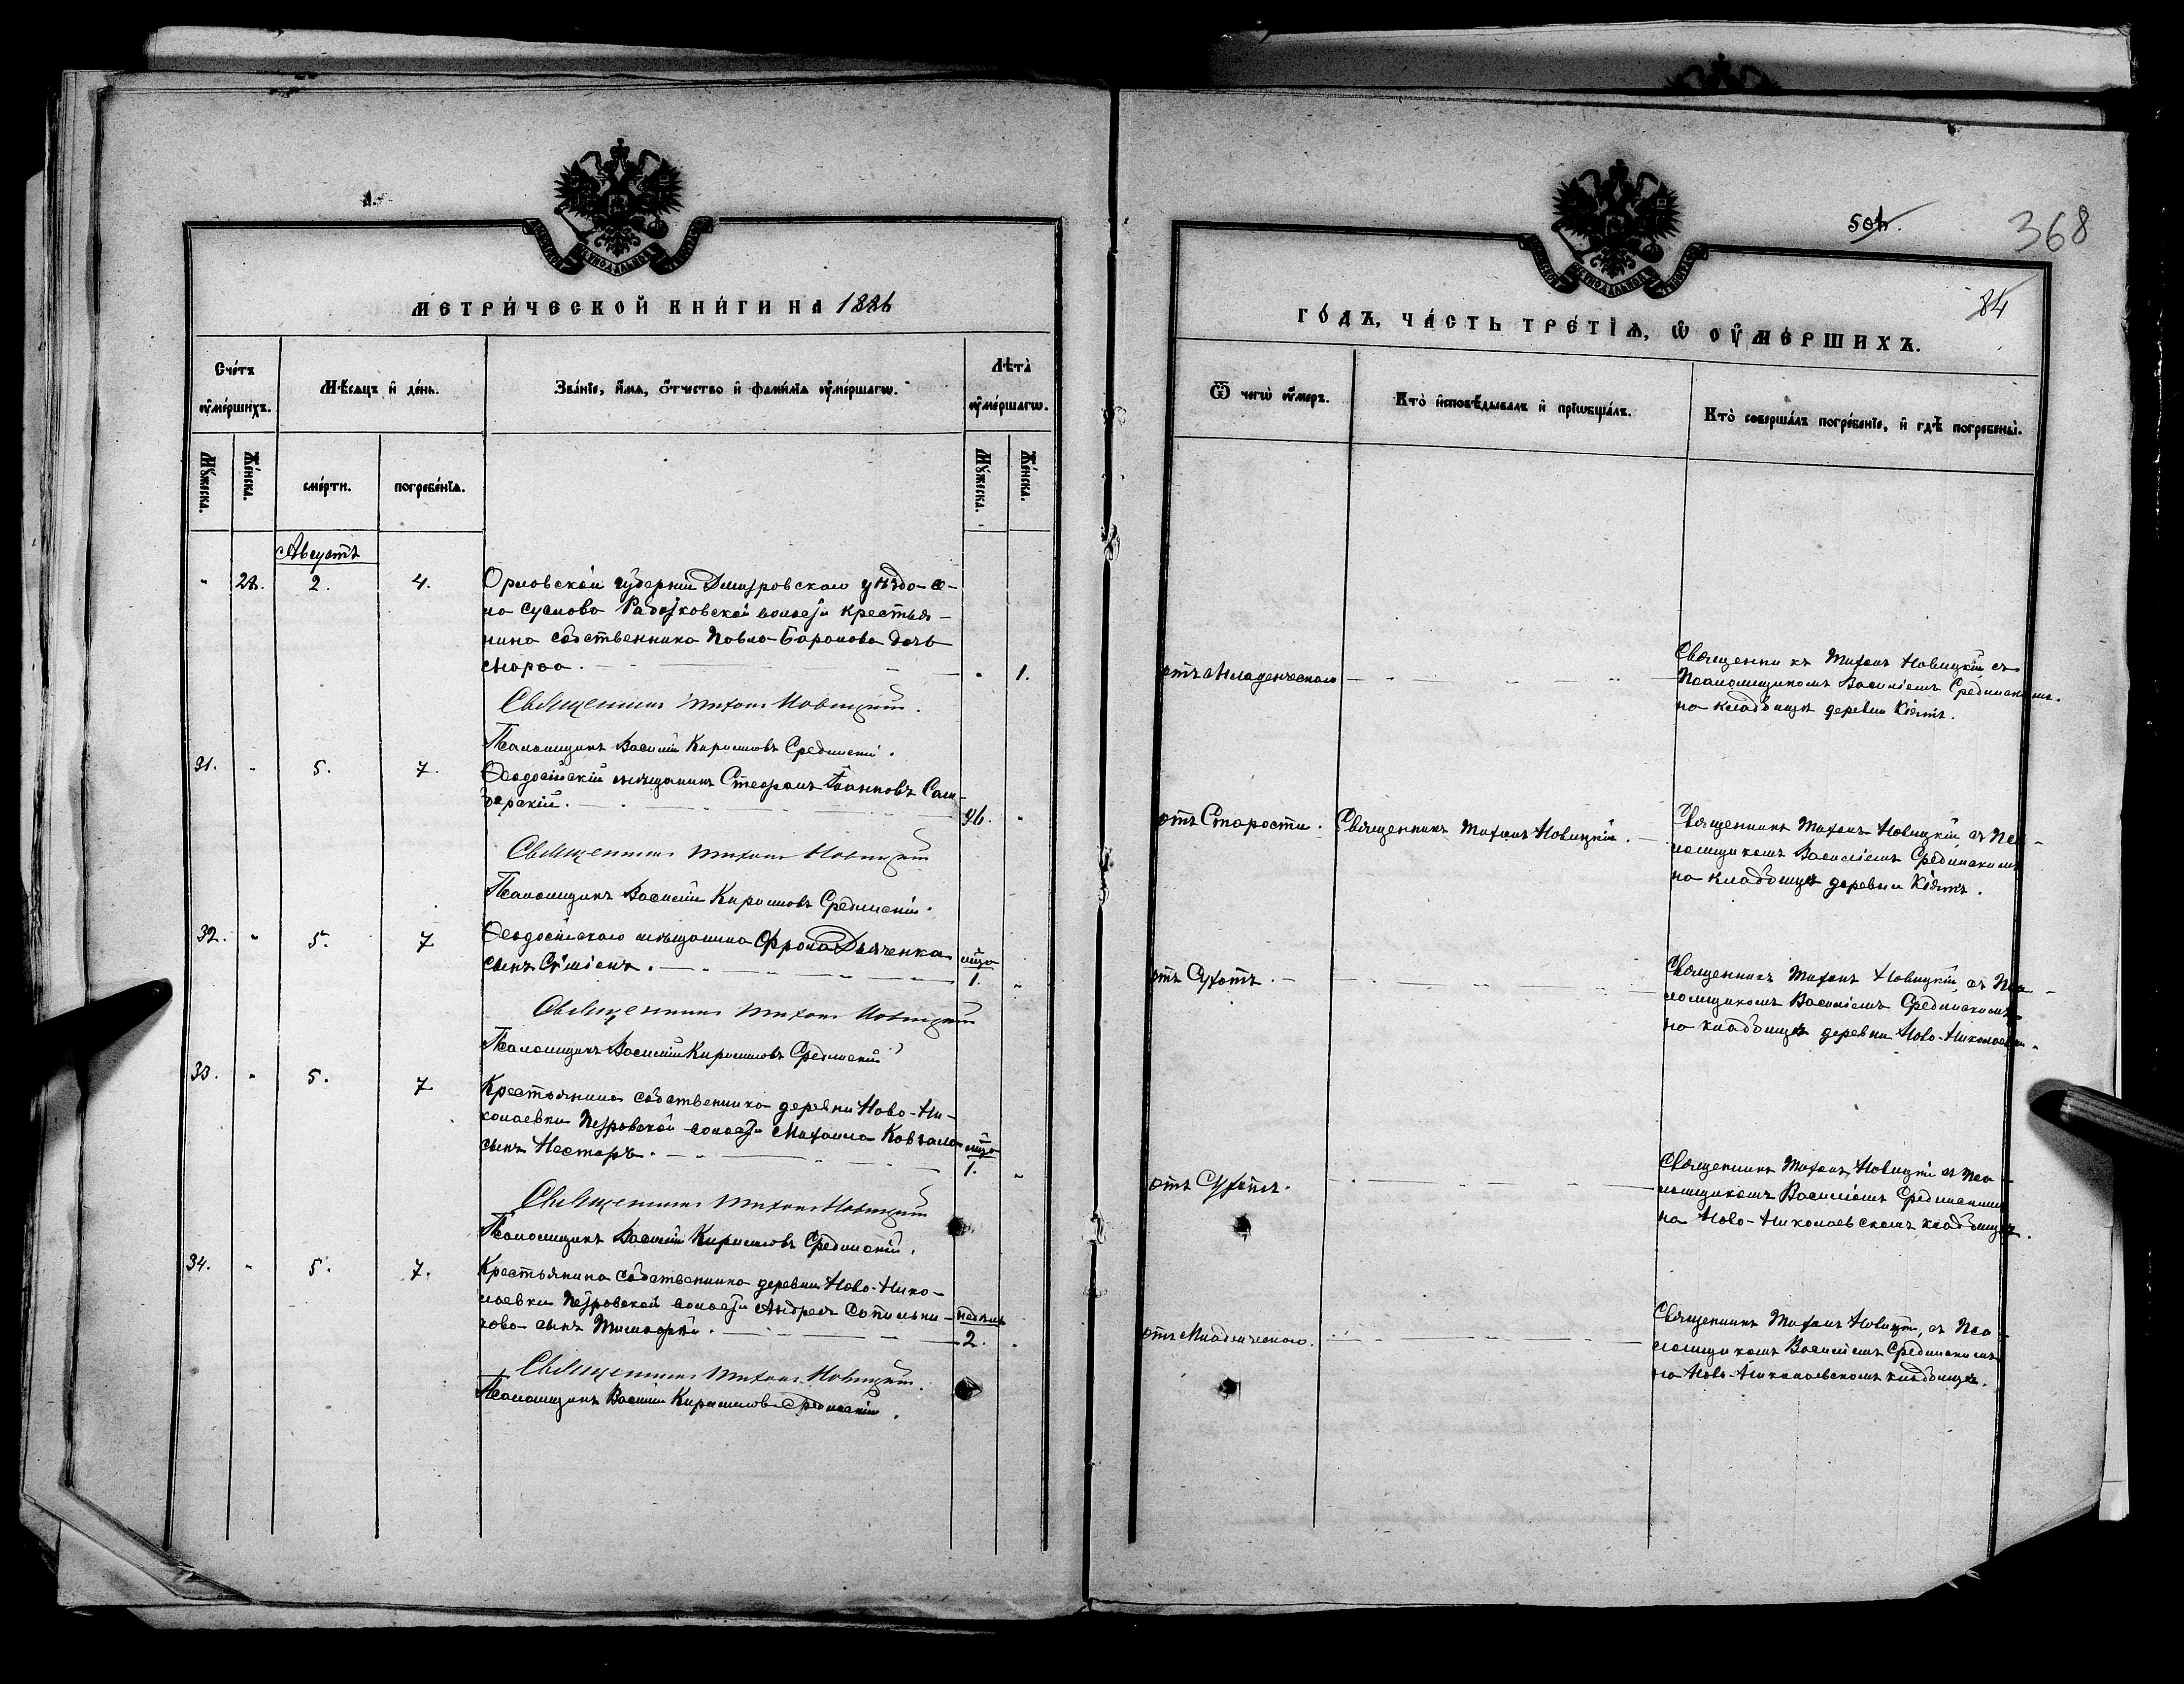 МЕТРИ́ЧЕСКОЙ КНИ́ГИ НА 1886
Сче́тъ ᲂу҆ме́ршихъ.
Мѣ́сяцъ и҆ де́нь.
Зва́нїе, и҆́мѧ, ѻ҆́тчество и҆ фами́лїѧ ᲂу҆ме́ршагѡ.
Лѣта̀ ᲂу҆ме́ршагѡ.
Мꙋ́жеска.
Же́нска.
сме́рти.
погребе́нїѧ.
Мꙋ́жеска.
Же́нска.
Августъ
" 28. 2. 4.
Орловской губерніи Дмитровскаго уѣзда се-
ла Суслова Радоговской волости крестья-
нина собственника Павла Баранова дочь
Марѳа. " 1.
Священникъ Тихонъ Новицкій.
Псаломщикъ Василій Кириловъ Срединскій.
31. " 5. 7.
Ѳеодосійскій мѣщанинъ Стефанъ Іоанновъ Сам-
барскій. 96. "
Священникъ Тихонъ Новицкій
Псаломщикъ Василій Кириловъ Срединскій.
32. " 5. 7
Ѳеодосійскаго мѣщанина Фрола Дьяченка
сынъ Симеонъ. мѣс. 1. "
Священникъ Тихонъ Новицкій
Псаломщикъ Василій Кириловъ Срединскій
33. " 5. 7
Крестьянина собственника деревни Ново-Ни-
колаевки Петровской волости Михаила Ковтала
сынъ Несторъ. 1. "
Священникъ Тихонъ Новицкій
Псаломщикъ Василій Кириловъ Срединскій.
34. " 5. 7.
Крестьянина собственника деревни Ново-Нико-
лаевки Петровской волости Андрея Сотильни-
кова сынъ Тимофей. недѣль 2. "
Священникъ Тихонъ Новицкій.
Псаломщикъ Василій Кириловъ Срединскій.
368
84
ГО́ДЪ, ЧА́СТЬ ТРЕ́ТЇѦ, Ѡ҆ ОУ҆МЕ́РШИХЪ.
Ѿ чегѡ̀ ᲂу҆́меръ.
Кто̀ и҆сповѣ́дывалъ и҆ прїѡбща́лъ.
Кто̀ соверша́лъ погребе́нїе, и҆ гдѣ̀ погребены̀.
отъ Младенческаго
Священникъ Тихонъ Новицкій съ
Псаломщикомъ Василіемъ Срединскимъ.
на кладбищѣ деревни Кіятъ.
отъ Старости. Священникъ Тихонъ Новицкій.
Священникъ Тихонъ Новицкій съ Пса-
ломщикомъ Василіемъ Срединскимъ
на кладбищѣ деревни Кіятъ.
отъ Сухотъ.
Священникъ Тихонъ Новицкій, съ Пса-
ломщикомъ Василіемъ Срединскимъ
на кладбищѣ деревни Ново-Николаевки.
отъ Сухотъ.
Священникъ Тихонъ Новицкій съ Пса-
ломщикомъ Василіемъ Срединскимъ
на Ново-Николаевскомъ кладбищѣ.
отъ Младенческаго.
Священникъ Тихонъ Новицкій, съ Пса-
ломщикомъ Василіемъ Срединскимъ
на Ново-Николаевскомъ кладбищѣ.